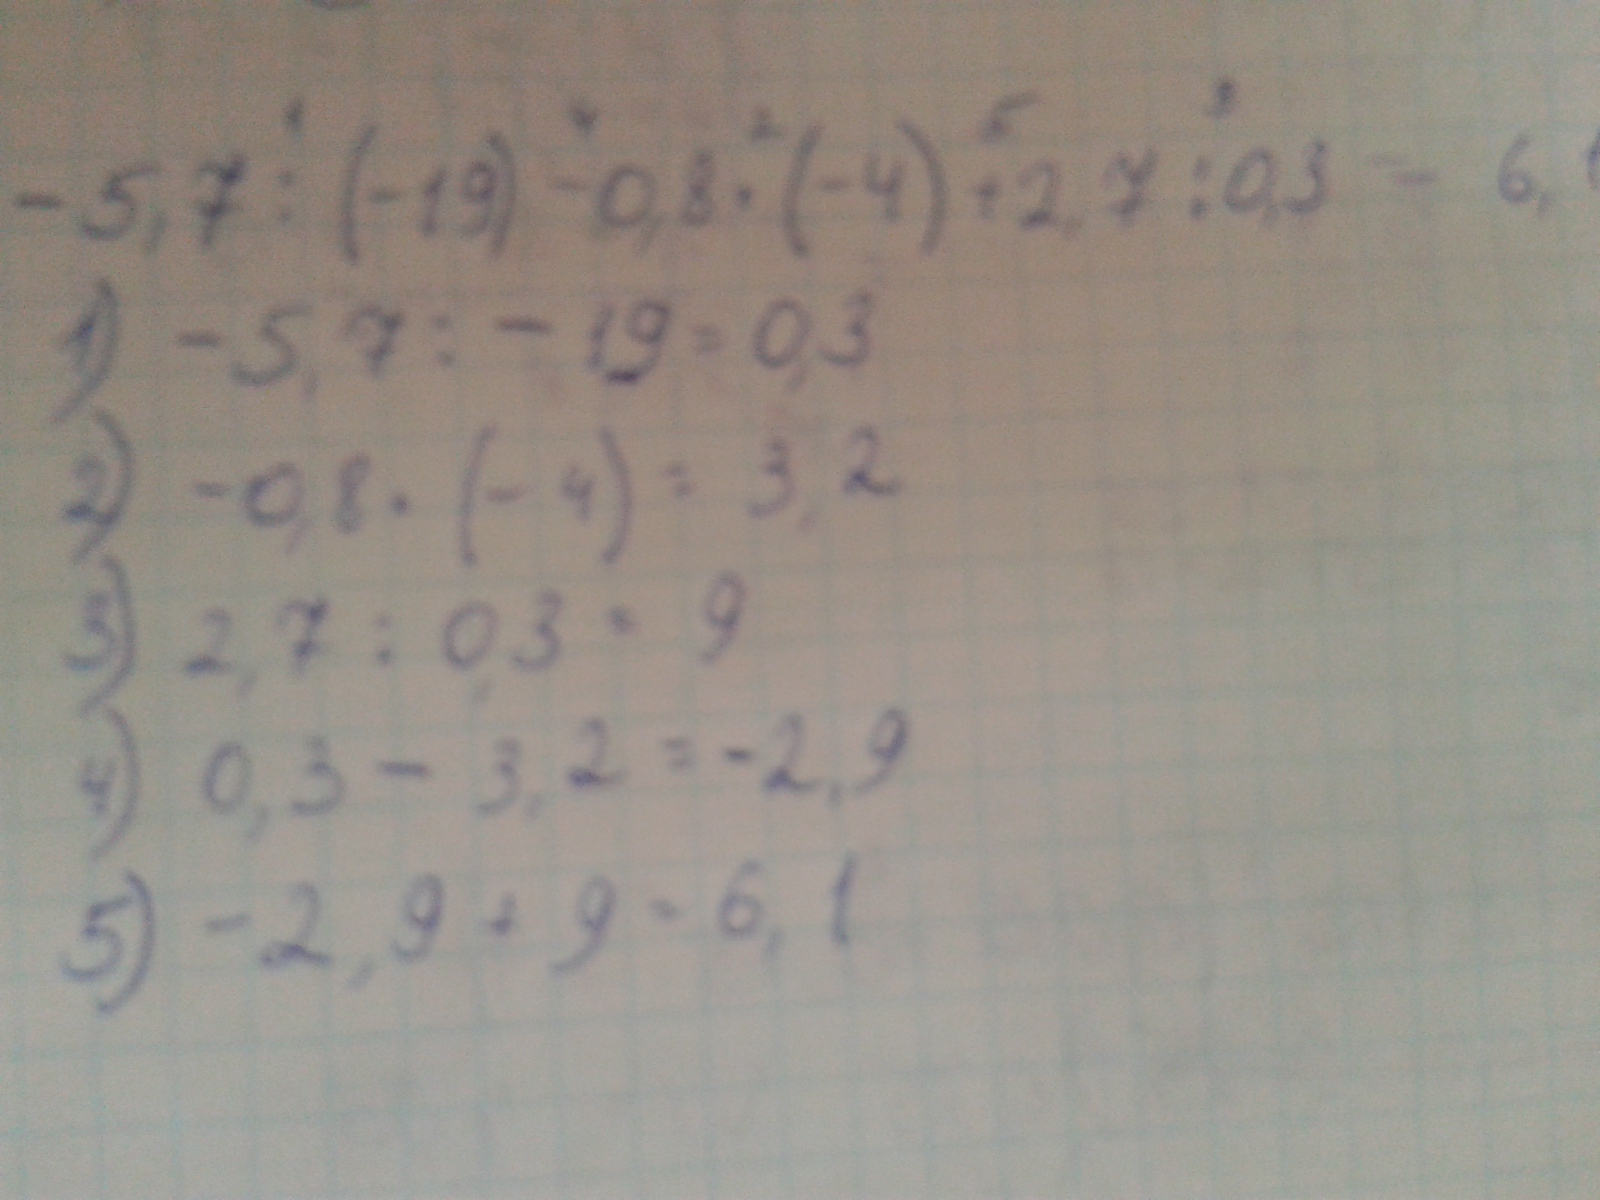 1 4 2 5 3
-5,7 : (-19) -0,8 · (-4) +2,7 : 0,3 = 6,1
1) -5,7 : -19 = 0,3
2) -0,8 · (-4) = 3,2
3) 2,7 : 0,3 = 9
4) 0,3 - 3,2 = -2,9
5) -2,9 + 9 = 6,1